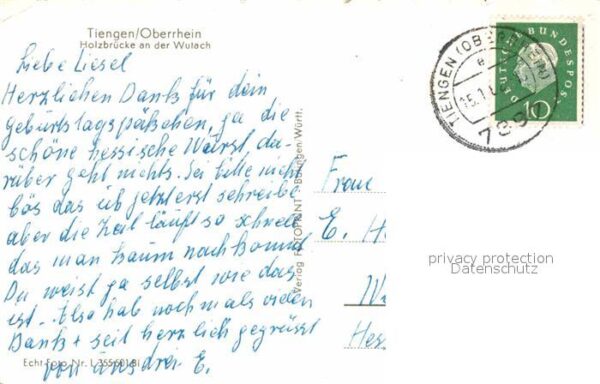 Tiengen/Oberrhein
Holzbrücke an der Wutach
Liebe Liesel
Herzlichen Dank für dein
Geburtstagspäkchen, ja die
schöne hessische Wurst, da-
rüber geht nichts. Sei bitte nicht
bös das ich jetzt erst schreibe
aber die Zeit läuft so schnell
das man kaum nachkommt
Du weist ja selbst wie das
ist. Also hab nochmals vielen
Dank + seit herzlich gegrüsst
von uns drei. E.
Echt Foto Nr. L 355601 BI
Verlag FOTOPRINT Württ.
Frau
E. H
W
Hess
TIENGEN (OBERRHEIN)
e
15.1.6
789
DEUTSCHE BUNDESPOST
10
privacy protection
Datenschutz